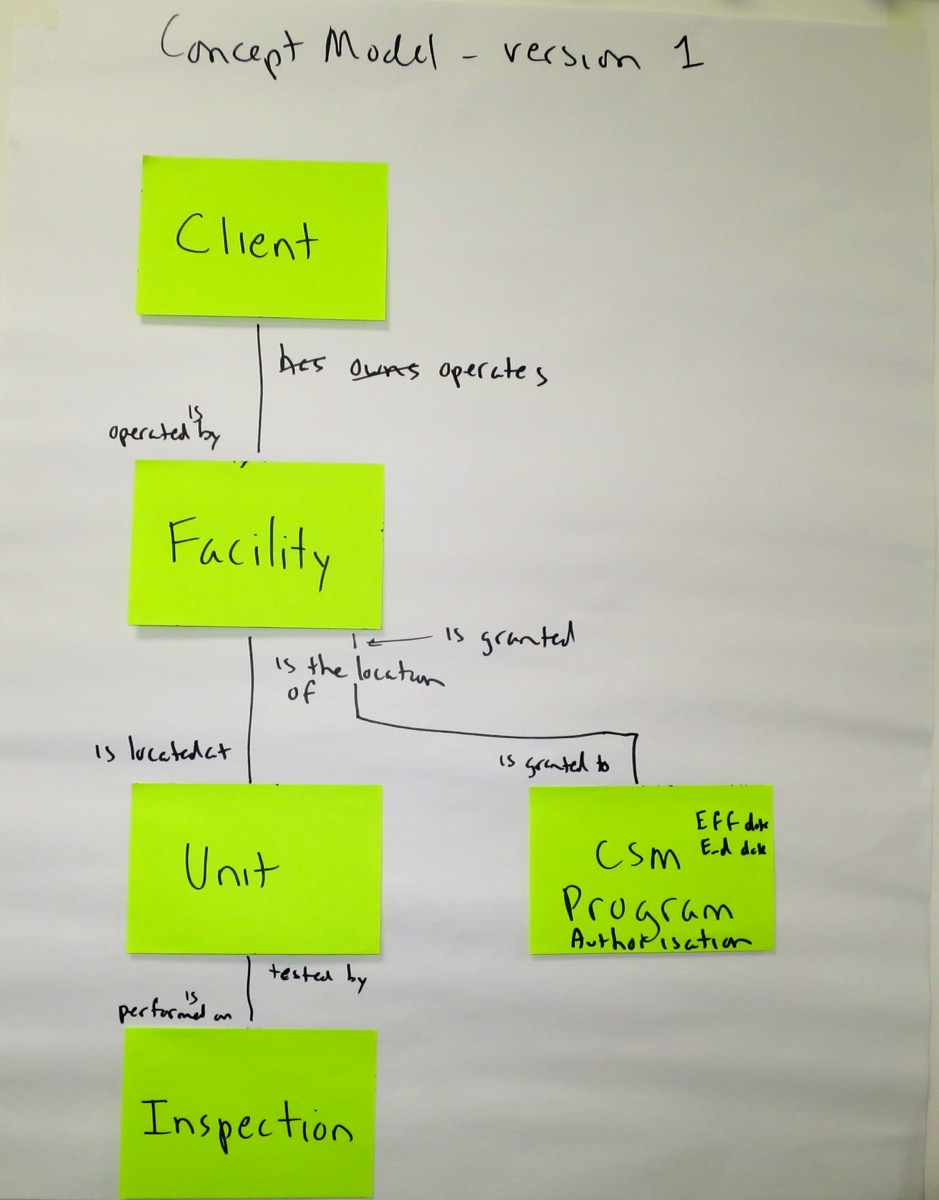 Concept Model - version 1
Client
has owns operates
is
operated by
Facility
is granted
is the location
of
is located at
is granted to
Unit
Eff date
End date
CSM
Program
Authorisation
tested by
is
performed on
Inspection